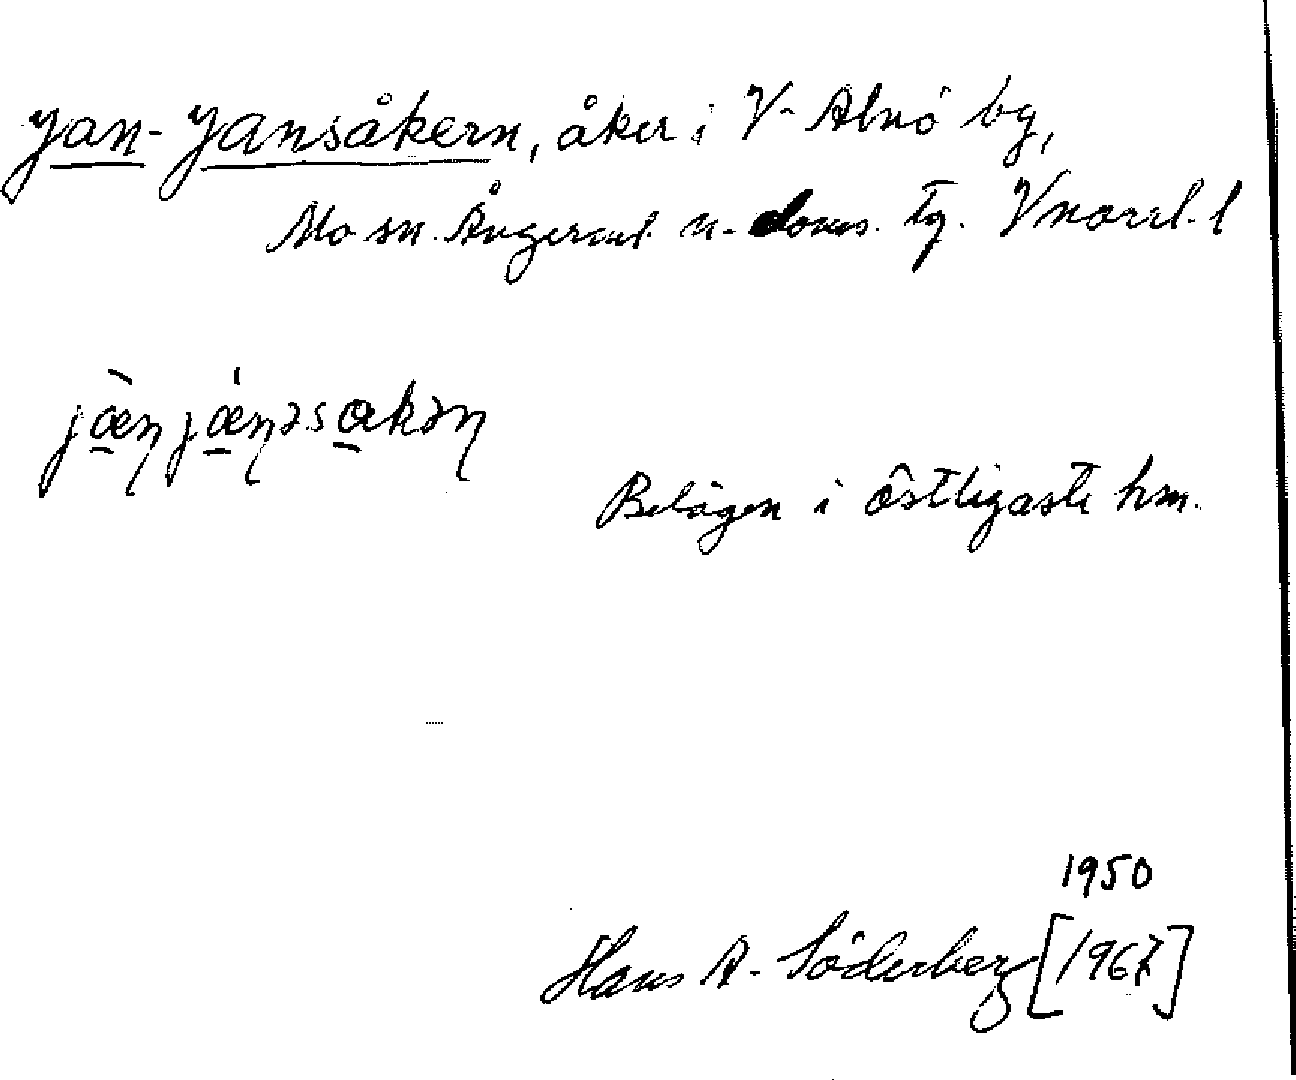 Jan-Jansåkern, åker i V. Alnö by,
Mo sn. Ångerml. n. doms. tg. Vnorrl. l
jæ̀n jǽnəsakən
Belägen i östligaste hm.
1950
Hans A. Söderberg [1967]